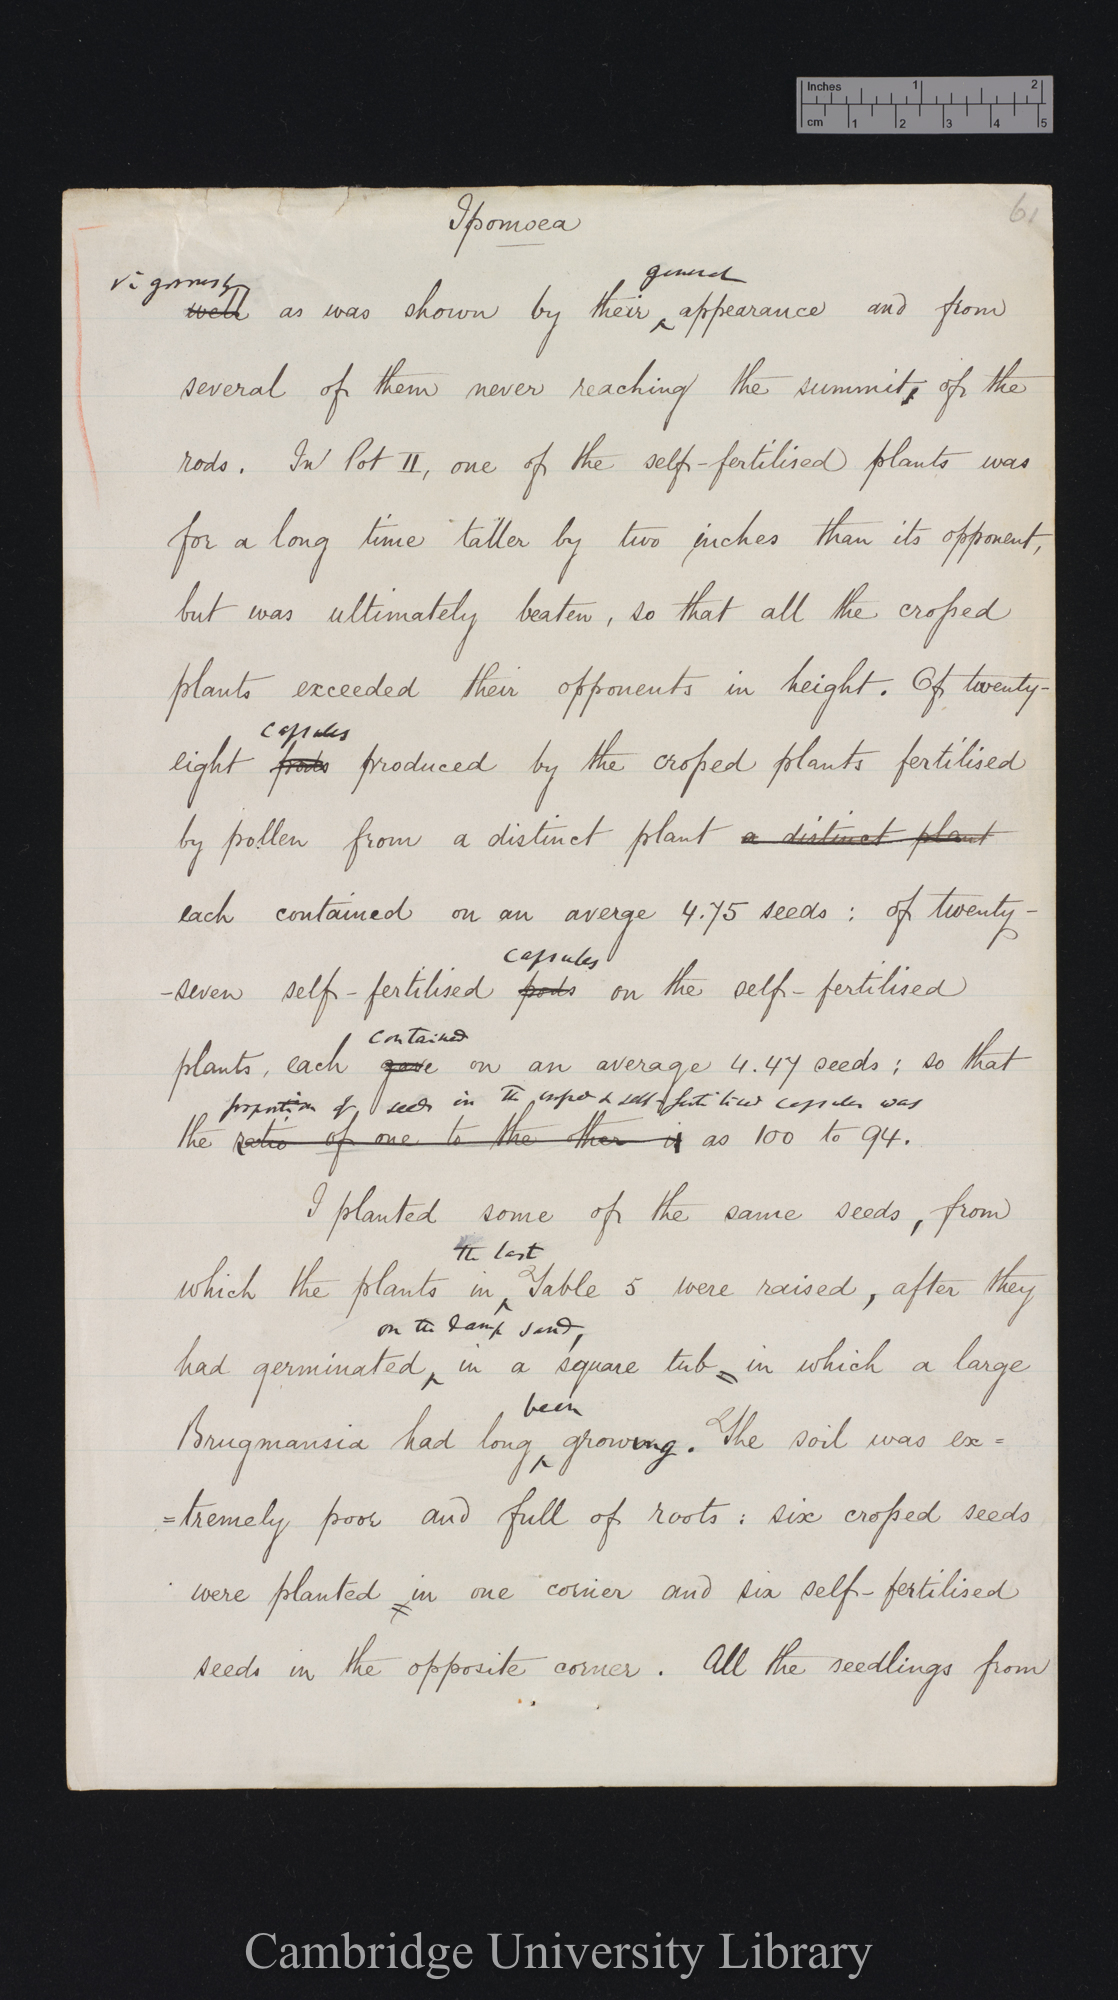 Inches 1 2
cm 1 2 3 4 5
61
Ipomoea
vigorously general
well as was shown by their ‸ appearance and from
several of them never reaching the summits of the
rods. In Pot II, one of the self-fertilised plants was
for a long time taller by two inches than its opponent,
but was ultimately beaten, so that all the crossed
plants exceeded their opponents in height. Of twenty-
capsules
eight pods produced by the crossed plants fertilised
by pollen from a distinct plant a distinct plant
each contained on an averge 4.75 seeds : of twenty-
capsules
-seven self-fertilised pods on the self-fertilised
contained
plants, each gave on an average 4.47 seeds; so that
proportion of seeds in the crossed & self-fertilised capsules was
the ratio of one to the other is as 100 to 94.
I planted some of the same seeds, from
the last
which the plants in ‸ Table 5 were raised, after they
on the damp sand,
had germinated ‸ in a square tub = in which a large
been
Brugmansia had long ‸ growing. The soil was ex=
=tremely poor and full of roots : six crossed seeds
were planted in one corner and six self-fertilised
seeds in the opposite corner. All the seedlings from
Cambridge University Library